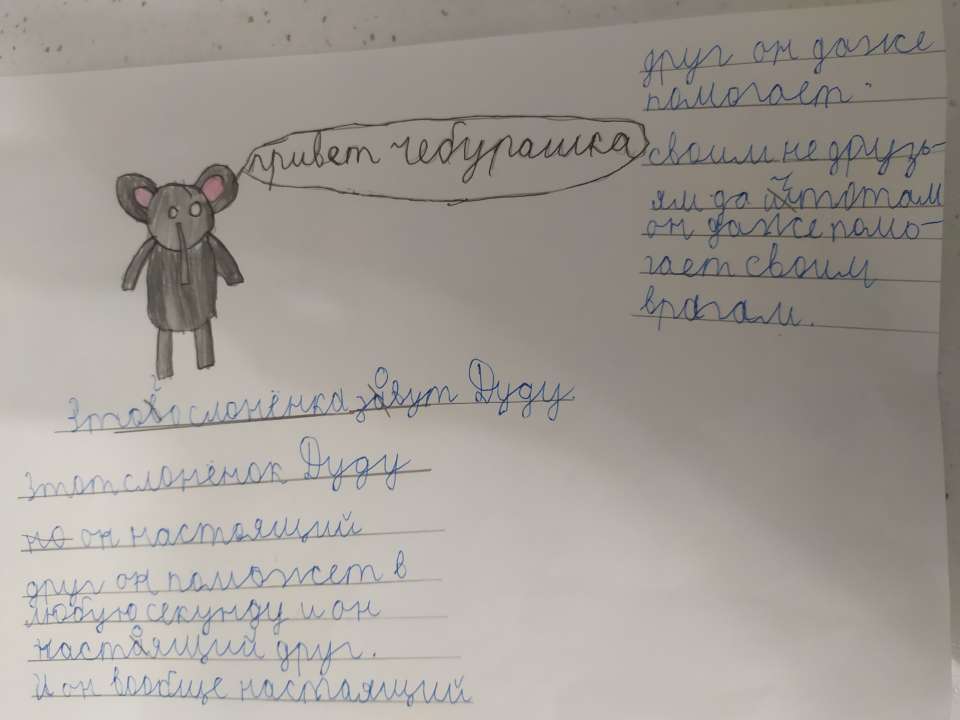 привет чебурашка
Этого слонёнка зовут Дуду.
Этот слонёнок Дуду
но он настоящий
друг он поможет в
любую секунду и он
настоящий друг.
И он вообще настоящий
друг он даже
помогает
своим не друзь-
ям да что там
он даже помо-
гает своим
врагам.